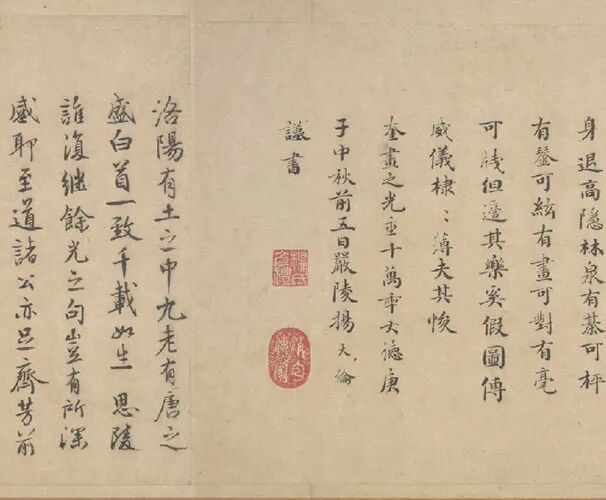 身退高隱林泉有棊可枰
有琴可絃有畫可對有毫
可牋但適其樂奚假圖傳
威儀棣〻薄夫其悛
奎畫之光垂千萬年大德庚
子中秋前五日嚴陵揚大倫
謹書
洛陽有土之中九老有唐之
盛白首一致千載如生思陵
誰復繼餘光之句豈有所深
感耶至道諸公亦足齊芳前